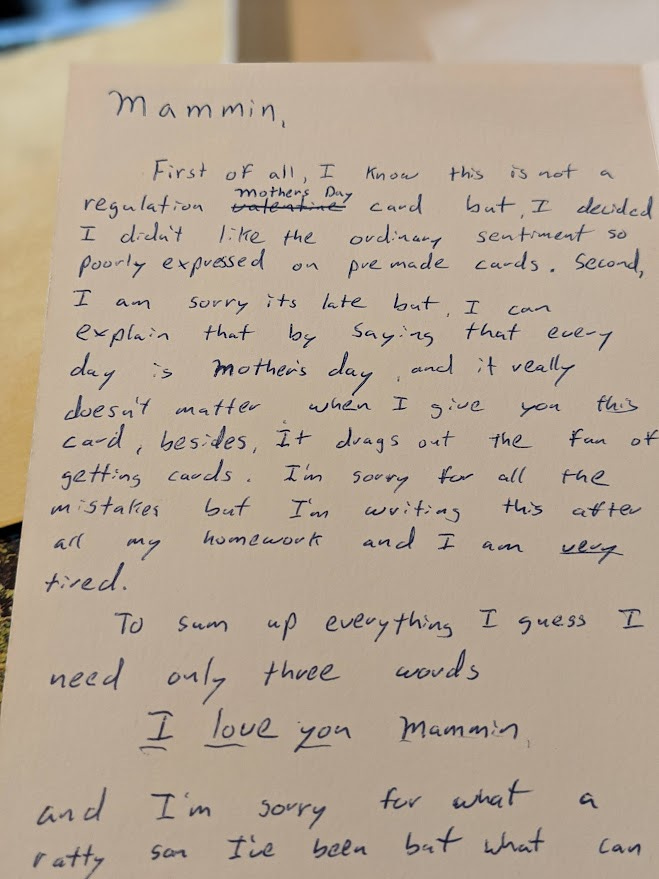 Mammin,
First of all, I know this is not a
Mothers Day
regulation valentine card but, I decided
I didn't like the ordinary sentiment so
poorly expressed on pre made cards. Second,
I am sorry its late but, I can
explain that by saying that every
day is Mother's day, and it really
doesn't matter when I give you this
card, besides, It drags out the fun of
getting cards. I'm sorry for all the
mistakes but I'm writing this after
all my homework and I am very
tired.
To sum up everything I guess I
need only three words
I love you Mammin,
and I'm sorry for what a
ratty son I've been but what can